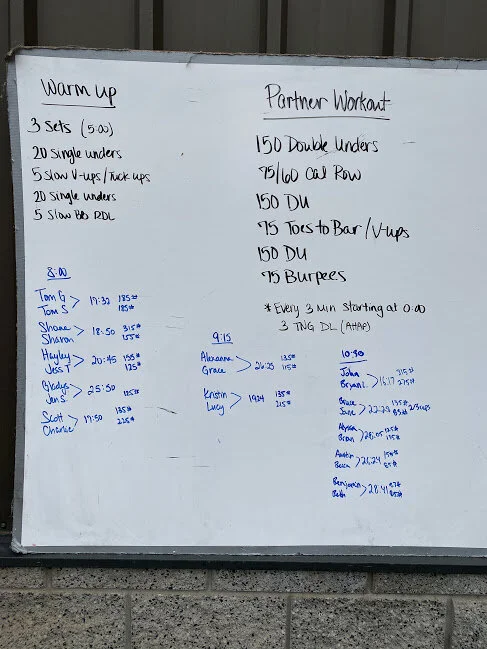 Warm up
3 Sets (5:00)
20 Single unders
5 Slow V-ups/Tuck ups
20 Single unders
5 Slow BB RDL
Partner Workout
150 Double Unders
75/60 Cal Row
150 DU
75 Toes to Bar/V-ups
150 DU
75 Burpees
* Every 3 Min Starting at 0:00
3 TNG DL (AHAP)
8:00
Tom G > 17:32 185#
Tom S 185#
Shane > 18:50 315#
Sharon 155#
Hayley > 20:45 155#
Jess T 125#
Gladys > 25:50 125#
Jen S
Scott > 17:50 135#
Charlie 225#
9:15
Alexanna > 26:25 135#
Grace 115#
Kristin > 1924 135#
Lucy 215#
10:30
John > 16:17 315#
Bryan L. 275#
Bruce > 22:29 135#
June 85# 2/3 reps
Alyssa > 28:05 125#
Brian 115#
Austin > 26:24 154#
Erica 85#
Benjamin > 28:41 87#
Beth 85#